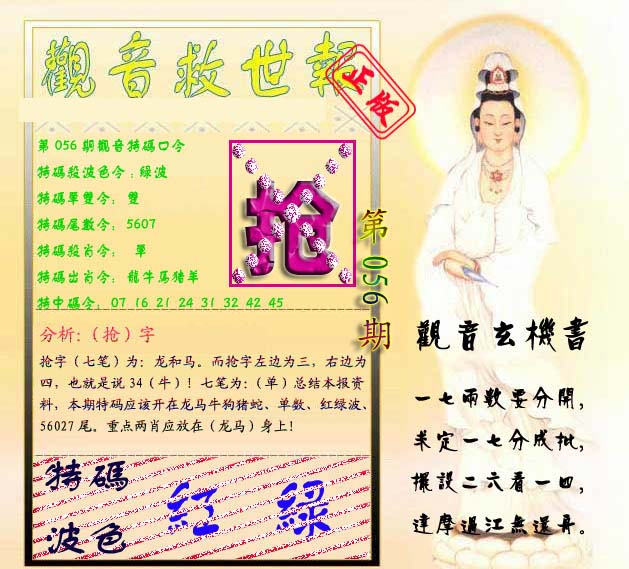 觀音救世報
正版
第 056 期觀音特碼口令
特碼殺波色令:綠波
特碼單雙令: 雙
特碼尾數令: 5607
特碼殺肖令: 單
特碼出肖令: 龍牛馬猪羊
特中碼令: 07 16 21 24 31 32 42 45
抢
第 056 期
分析:（抢）字
抢字（七笔）为：龙和马。而抢字左边为三，右边为
四，也就是说 34（牛）！七笔为：（单）总结本报资
料，本期特码应该开在龙马牛狗猪蛇、单数、红绿波、
56027 尾。重点两肖应放在（龙马）身上！
特碼
波色
紅 綠
觀音玄機書
一七兩數要分開，
求定一七分成批，
擺設二六看一四，
達摩過江無還哥。